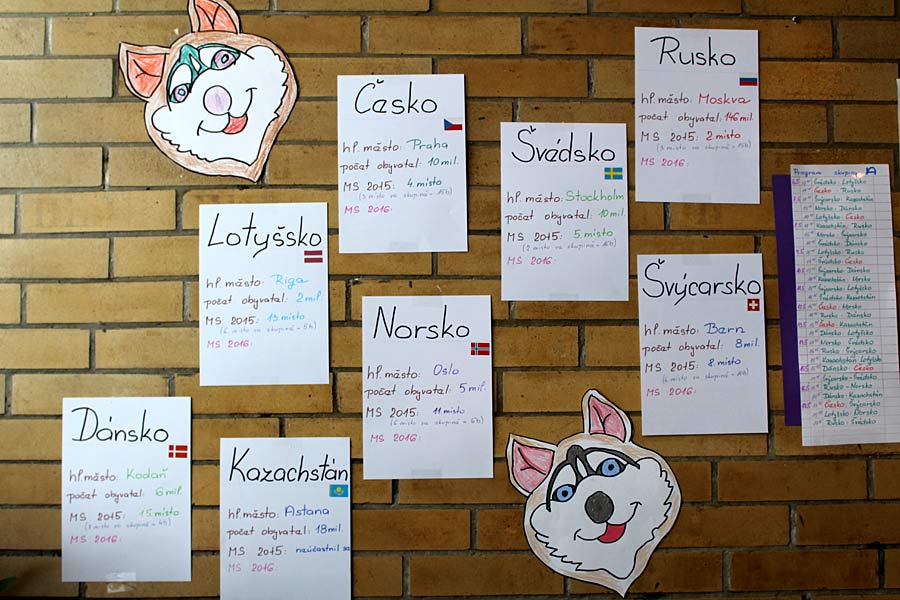 Česko
hl. město: Praha
počet obyvatel: 10 mil.
MS 2015: 4. místo
MS 2016:
Švédsko
hl. město: Stockholm
počet obyvatel: 10 mil.
MS 2015: 5. místo
MS 2016:
Rusko
hl. město: Moskva
počet obyvatel: 146 mil.
MS 2015: 2. místo
MS 2016:
Lotyšsko
hl. město: Riga
počet obyvatel: 2 mil.
MS 2015: 13. místo
(6 místo ve skupině - 5b)
MS 2016:
Norsko
hl. město: Oslo
počet obyvatel: 5 mil.
MS 2015: 11. místo
(6 místo ve skupině - 6b)
MS 2016:
Švýcarsko
hl. město: Bern
počet obyvatel: 8 mil.
MS 2015: 8. místo
MS 2016:
Dánsko
hl. město: Kodaň
počet obyvatel: 6 mil.
MS 2015: 15. místo
MS 2016:
Kazachstán
hl. město: Astana
počet obyvatel: 18 mil.
MS 2015: neúčastnil se
MS 2016:
Program skupiny A
Švédsko - Lotyšsko
Česko - Rusko
Švýcarsko - Kazachstán
Norsko - Dánsko
Lotyšsko - Česko
Kazachstán - Rusko
Norsko - Švýcarsko
Švédsko - Dánsko
Lotyšsko - Rusko
Švédsko - Česko
Švýcarsko - Dánsko
Kazachstán - Norsko
Švýcarsko - Lotyšsko
Švédsko - Kazachstán
Česko - Norsko
Rusko - Dánsko
Česko - Kazachstán
Dánsko - Lotyšsko
Norsko - Švédsko
Rusko - Švýcarsko
Kazachstán - Lotyšsko
Dánsko - Česko
Švýcarsko - Švédsko
Rusko - Norsko
Dánsko - Kazachstán
Česko - Švýcarsko
Lotyšsko - Norsko
Rusko - Švédsko